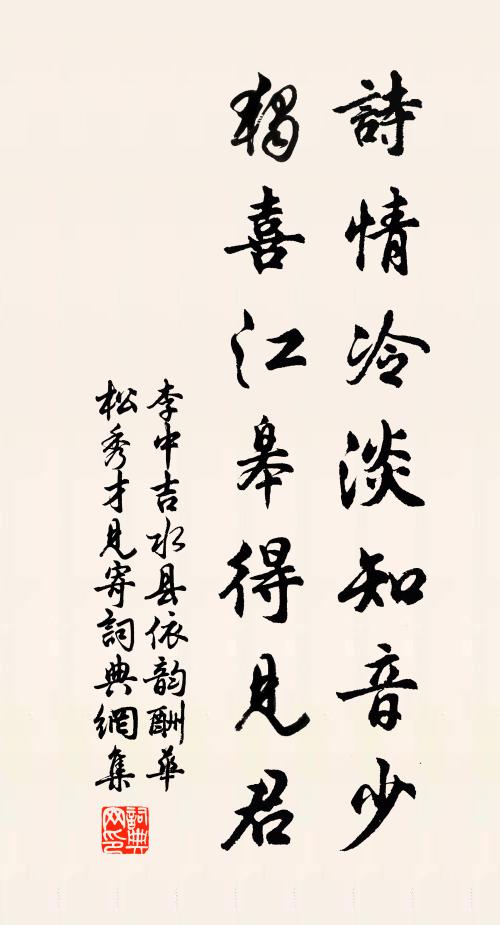 詩情冷淡知音少
獨喜江皋得見君
李中吉水县依韵酬華
松秀才見寄詞典網集
詞典
网印